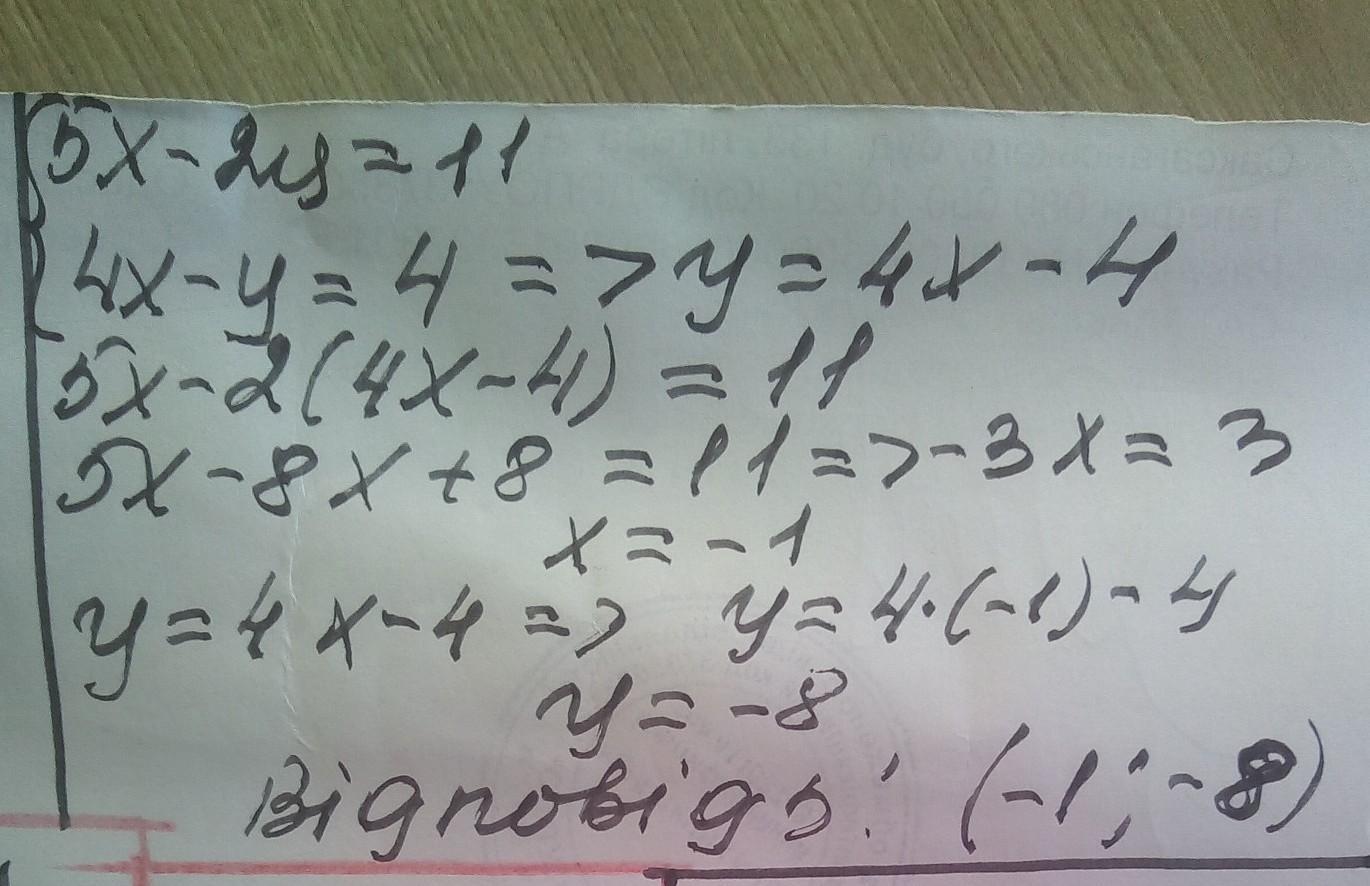 5x - 2y = 11
4x - y = 4 => y = 4x - 4
5x - 2(4x - 4) = 11
5x - 8x + 8 = 11 => -3x = 3
x = -1
y = 4x - 4 => y = 4·(-1) - 4
y = -8
Відповідь: (-1; -8)